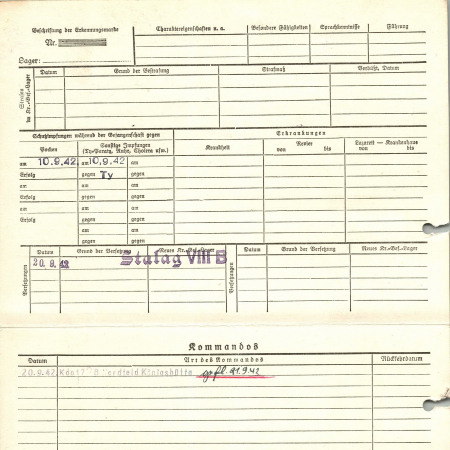 Beschriftung der Erkennungsmarke
Nr.
Lager:
Charaktereigenschaften u. a.
Besondere Fähigkeiten
Sprachkenntnisse
Führung
Strafen im Kr.-Gef.-Lager
Datum
Grund der Bestrafung
Strafmaß
Verbüßt, Datum
Schutzimpfungen während der Gefangenschaft gegen
Erkrankungen
Pocken
Sonstige Impfungen
(Ty-Paraty, Ruhr, Cholera usw.)
Krankheit
Revier
von bis
Lazarett — Krankenhaus
von bis
am 10.9.42 am 10.9.42 am
Erfolg gegen Ty gegen
am am am
Erfolg gegen gegen
am am am
Erfolg gegen gegen
am am
gegen gegen
Versetzungen
Datum
Grund der Versetzung
Neues Kr.-Gef.-Lager
Versetzungen
Datum
Grund der Versetzung
Neues Kr.-Gef.-Lager
20.9.42 Stalag VIII B
Kommandos
Datum
Art des Kommandos
Rückkehrdatum
20.9.42 Königshütte gefl. 21.9.42